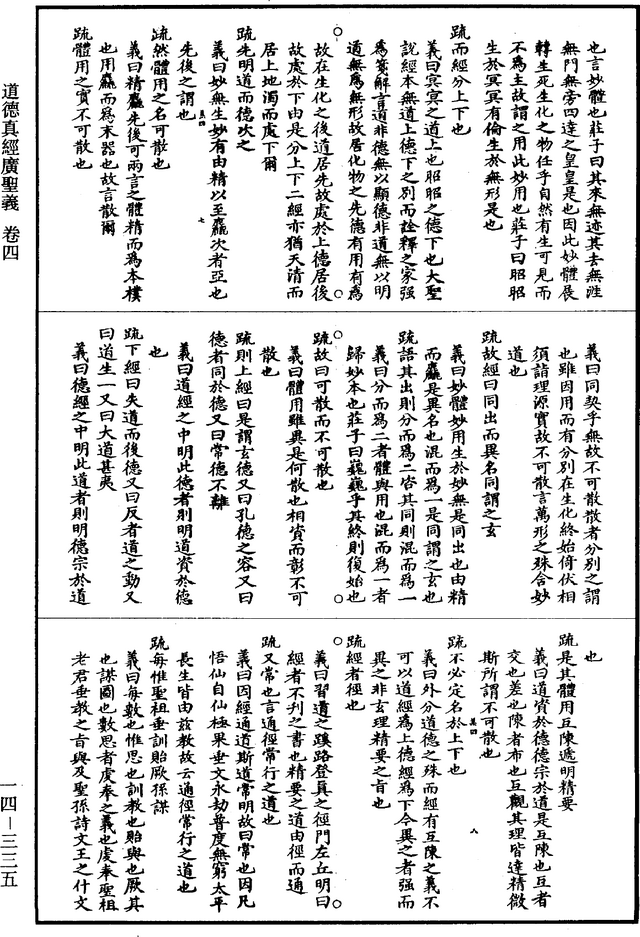 道德真經廣聖義 卷四
也言妙體也莊子曰其來無迹其去無涯
無門無旁四達之皇皇是也因此妙體展
轉生死生化之物任乎自然有生可見而
不為主故謂之用此妙用也莊子曰昭昭
生於冥冥有倫生於無形是也
疏而經分上下也
義曰冥冥之道上也昭昭之德下也大聖
說經本無道上德下之別而詮釋之家強
為箋解言道非德無以顯德非道無以明
道無為無形故居化物之先德有用有為
故在生化之後道居先故處於上德居後
故處於下由是分上下二經亦猶天清而
居上地濁而處下爾
疏先明道而德次之
義曰妙無生妙有由精以至麤次者亞也
先後之謂也
疏然體用之名可散也
義曰精麤先後可兩言之體精而為本樸
也用麤而為末器也故言散爾
疏體用之實不可散也
義曰同契乎無故不可散散者分別之謂
也雖因用而有分別在生化終始倚伏相
須詣理源實故不可散言萬形之殊含妙
道也
疏故經曰同出而異名同謂之玄
義曰妙體妙用生於妙無是同出也由精
而麤是異名也混而為一是同謂之玄也
疏語其出則分而為二咨其同則混而為一
義曰分而為二者體與用也混而為一者
歸妙本也莊子曰巍巍乎其終則復始也
疏故曰可散而不可散也
義曰體用雖異是何散也相資而彰不可
散也
疏則上經曰是謂玄德又曰孔德之容又曰
德者同於德又曰常德不離
義曰道經之中明此德者則明道資於德
也
疏下經曰失道而後德又曰反者道之動又
曰道生一又曰大道甚夷
義曰德經之中明此道者則明德宗於道
也
疏是其體用互陳遞明精要
義曰道資於德德宗於道是互陳也互者
交也差也陳者布也互觀其理皆達精微
斯所謂不可散也
疏不必定名於上下也
義曰外分道德之殊而經有互陳之義不
可以道經為上德經為下令異之者強而
異之非玄理精要之旨也
疏經者徑也
義曰習道之蹊路登真之徑門左丘明曰
經者不刋之書也精要之道由徑而通
疏又常也言通徑常行之道也
義曰因經通道斯道常明故曰常也因凡
悟仙自仙極果垂文永劫普度無窮太平
長生皆由兹教故云通徑常行之道也
疏每惟聖祖垂訓貽厥孫謀
義曰每數也惟思也訓教也貽與也厥其
也謀圖也數思者虔奉之義也虔奉聖祖
老君垂教之旨與及聖孫詩文王之什文
一四－三三五